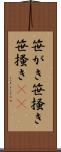 笹がき笹掻き
笹掻き